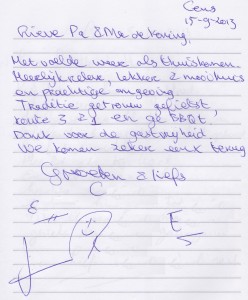 Cens
15-9-2013
Lieve Pa & Ma de Koning,
Het voelde weer als thuiskomen.
Heerlijk relax, lekker 2 mooi huis
en prachtige omgeving.
Traditie getrouw gefietst,
route 3 2 1 en ge BBQt.
Dank voor de gastvrijheid.
We komen zeker eens terug
Groeten & liefs
C
E